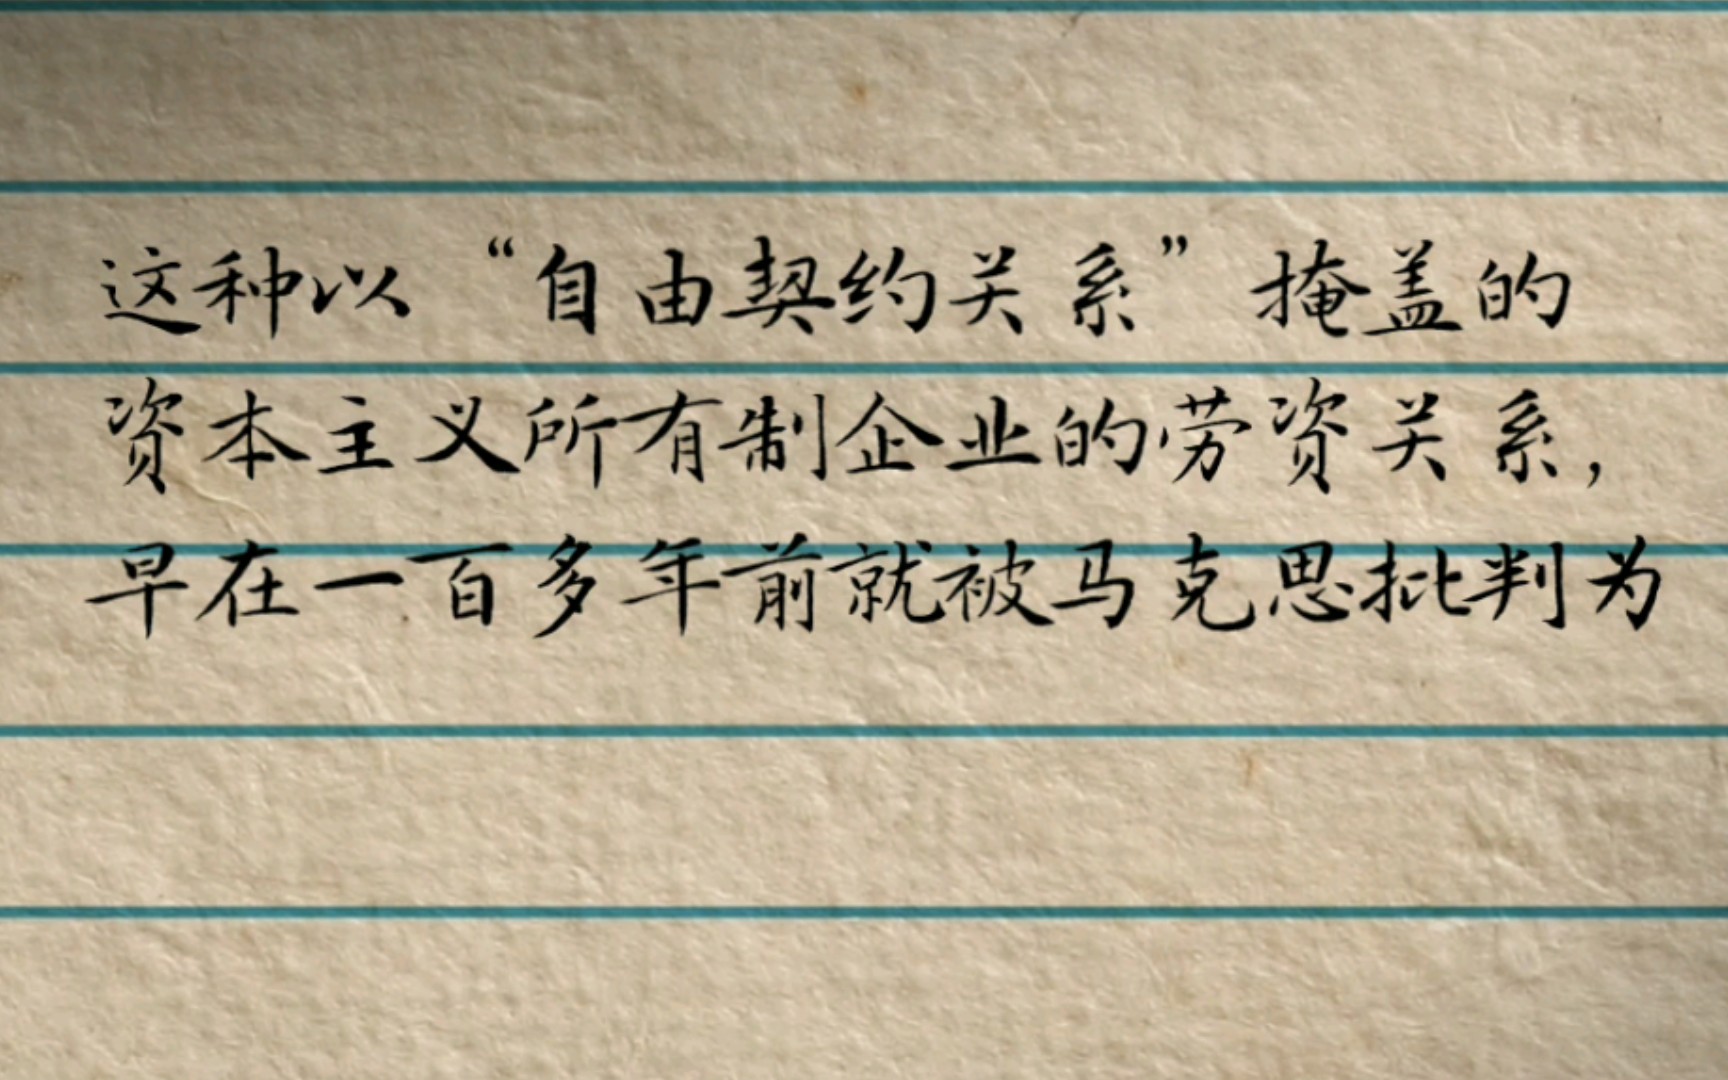 这种以“自由契约关系”掩盖的
资本主义所有制企业的劳资关系，
早在一百多年前就被马克思批判为